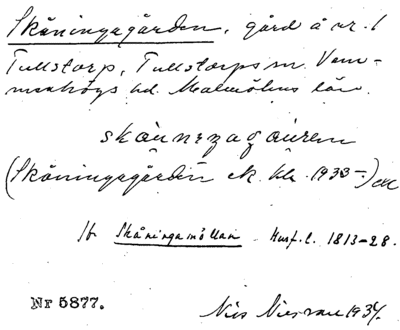 Skåningagården, gård å nr. 1
Tullstorp, Tullstorps sn. Vem-
menhögs hd. Malmöhus län.
(Skåningagården ek. kla. 1933-)
Jfr Skåningamöllan Husf. l. 1813-28.
Nr 5877.
Nils Nilsson 1934.